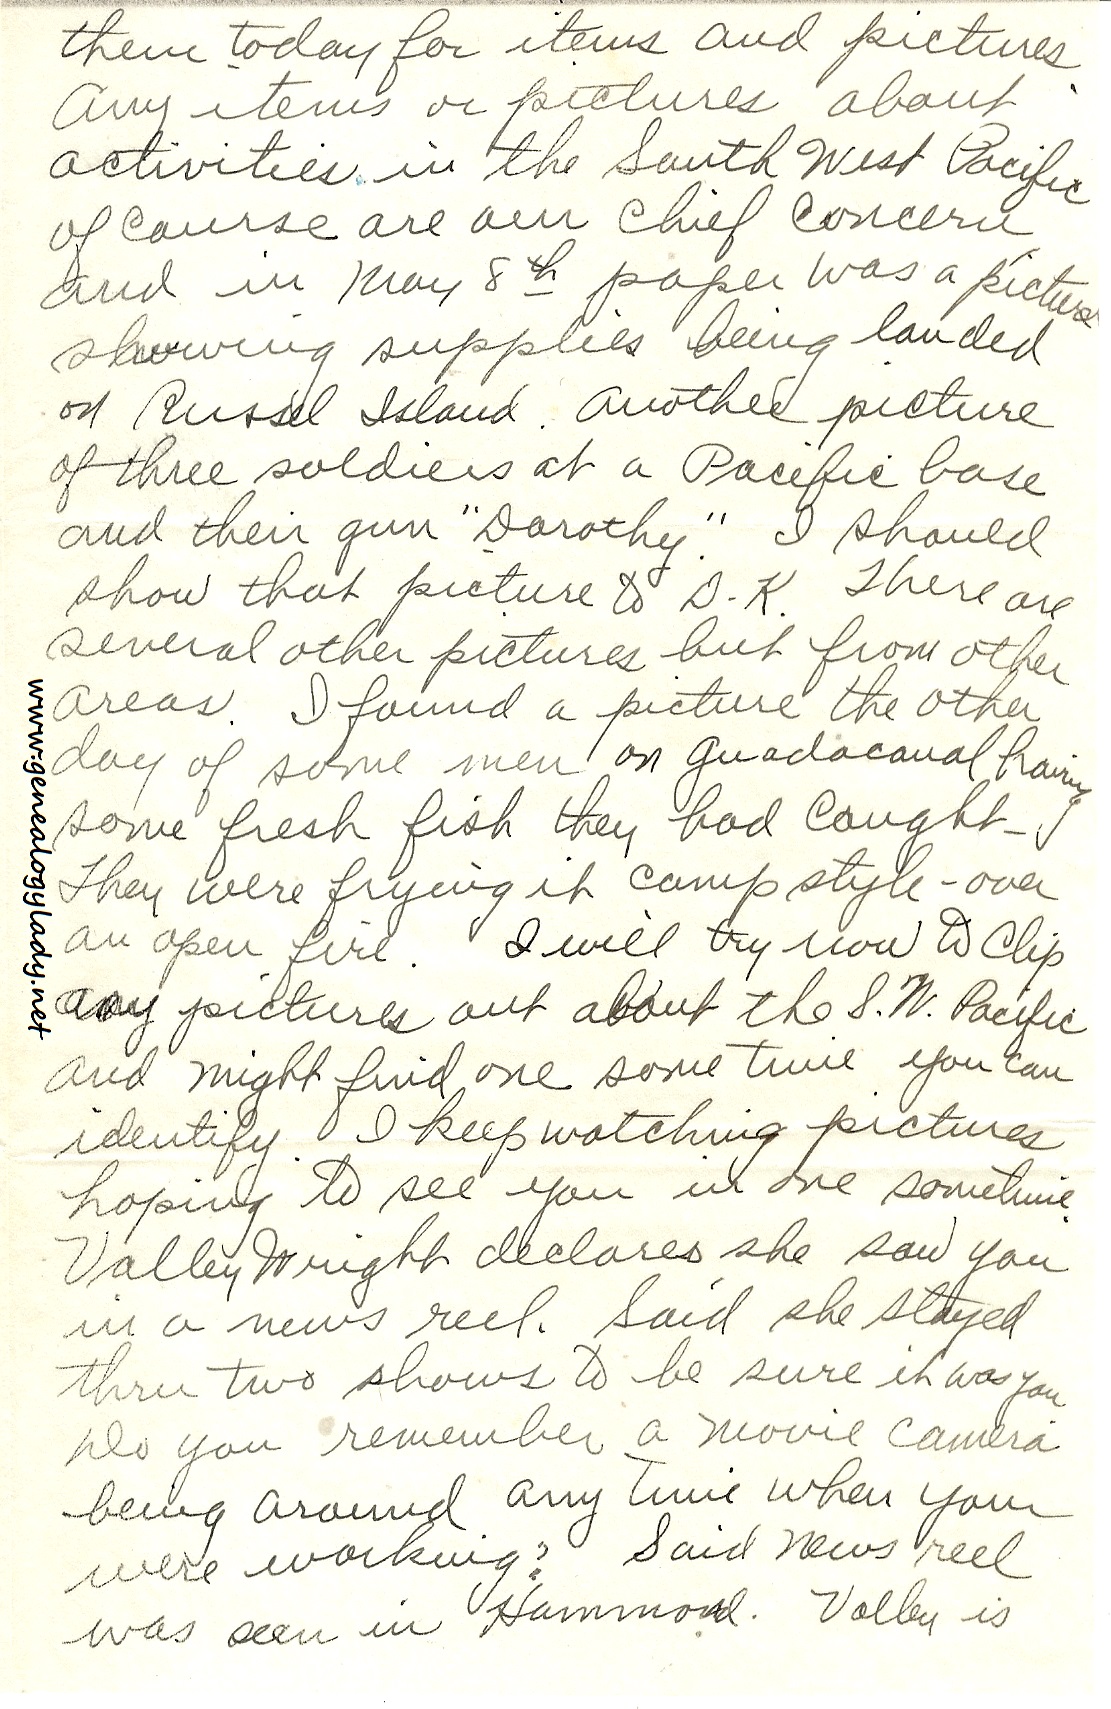 them today for items and pictures.
Any items or pictures about
activities in the South West Pacific
of course are our chief concern
and in May 8th paper was a picture
showing supplies being landed
on Russel Island. Another picture
of three soldiers at a Pacific base
and their gun "Dorothy". I should
show that picture to D-K. There are
several other pictures but from other
areas. I found a picture the other
day of some men on Guadacanal having
some fresh fish they had caught -
They were frying it camp style - over
an open fire. I will try now to clip
any pictures out about the S.W. Pacific
and might find one some time you can
identify. I keep watching pictures
hoping to see you in one sometime.
Valley Wright declares she saw you
in a news reel. Said she stayed
thru two shows to be sure it was you
Do you remember a movie camera
being around any time when your
were working? Said news reel
was seen in Hammond. Valley is
www.genealogylady.net